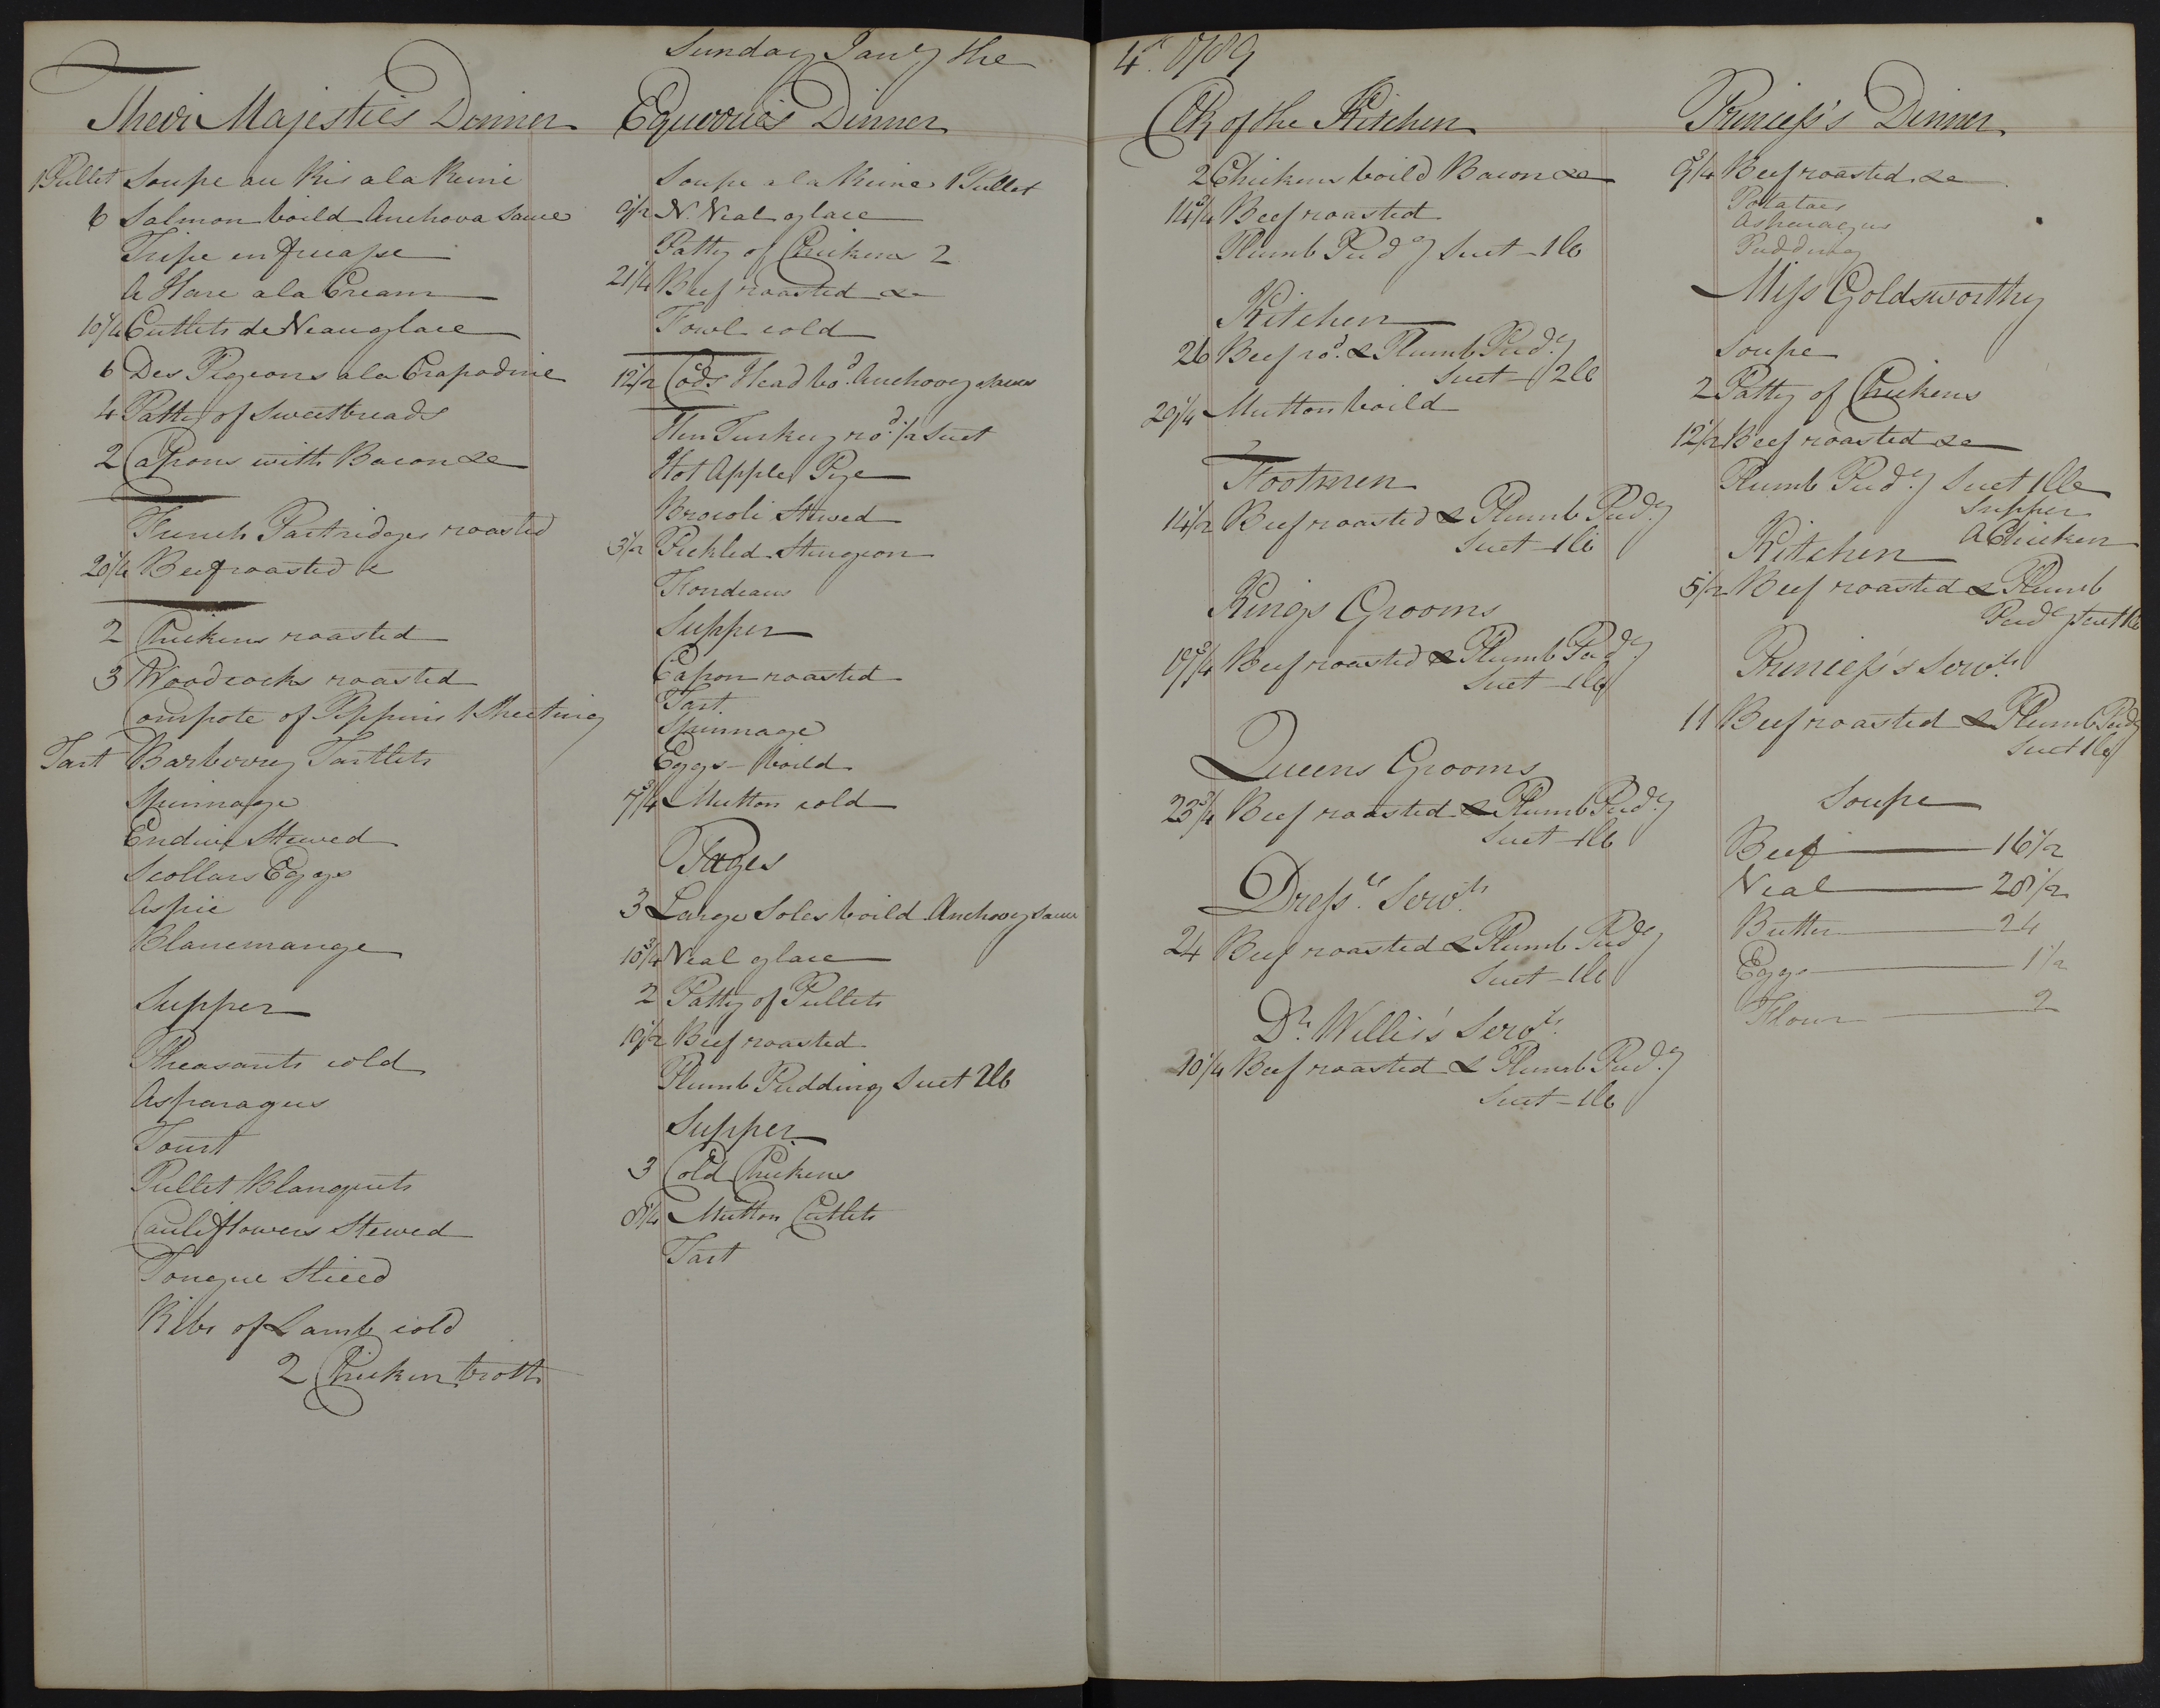 Sunday Jany the
4th 1789
Their Majesties Dinner
1 Pullet Soupe au Ris a la Reine
6 Salmon boild Anchova Sauce
Tripe en
A Hare a la Cream
10 1/4 Cutlets de Veau glace
6 Des Pigeons a la Crapodine
4 Patty of Sweetbreads
2 Capons with Bacon &c
French Partridges roasted
20 1/4 Beef roasted &c
2 Chickens roasted
3 Woodcocks roasted
Compote of Pippins 1
Tart Barberry Tartlets
Spinnage
Endive Stewed
Scollars Eggs
Aspic
Blancmange
Supper
Pheasants cold
Asparagus
Tourt
Pullet Blanquets
Cauliflowers Stewed
Tongue Sliced
Ribs of Lamb cold
2 Chicken broth
Equerries Dinner
Soupe a la Reine 1 Pullet
9 1/2 N. Veal glace
Patty of Chickens 2
21 1/4 Beef roasted &c
Fowl cold
12 1/2 Cods Head bod. Anchovy Sauce
Hen Turkey rod. 1/2 Suet
Hot Apple Pye
Brocoli Stewed
3 1/2 Pickled Sturgeon
Fondeaus
Supper
Capon roasted
Tart
Spinnage
Eggs - boild
7 3/4 Mutton cold
Pages
3 Large Soles boild Anchovy Sauce
Veal glace
2 Patty of Pullets
19 1/2 Beef roasted
Plumb Pudding Suet 2lb
Supper
3 Cold Chickens
8 1/4 Mutton Cutlets
Tart
Clk of the Kitchen
2 Chickens boild Bacon &c
14 3/4 Beef roasted
Plumb Pudg Suet - 1lb
Kitchen
26 Beef rod. & Plumb Pudg
Suet - 2lb
29 1/4 Mutton boild
Footmen
14 1/2 Beef roasted & Plumb Pudg
Suet - 1lb
Kings Grooms
19 3/4 Beef roasted & Plumb Pudg
Suet - 1lb
Queens Grooms
23 3/4 Beef roasted & Plumb Pudg
Suet - 1lb
Dress.rs Servts
24 Beef roasted & Plumb Pudg
Suet - 1lb
Dr. Willis's Servts
Beef roasted & Plumb Pudg
Suet - 1lb
Princess's Dinner
9 3/4 Beef roasted &c
Potatoes
Asparagus
Pudding
Miss Goldsworthy
Soupe
2 Patty of Chickens
12 1/2 Beef roasted &c
Plumb Pudg Suet 1lb
Supper
A Chicken
Kitchen
5 1/2 Beef roasted & Plumb
Pudg Suet 1lb
Princess's Servts
11 Beef roasted & Plumb Pudg
Suet 1lb
Soupe
Beef 16 1/2
Veal 28 1/2
Butter 24
Eggs 1 1/2
Flour 2